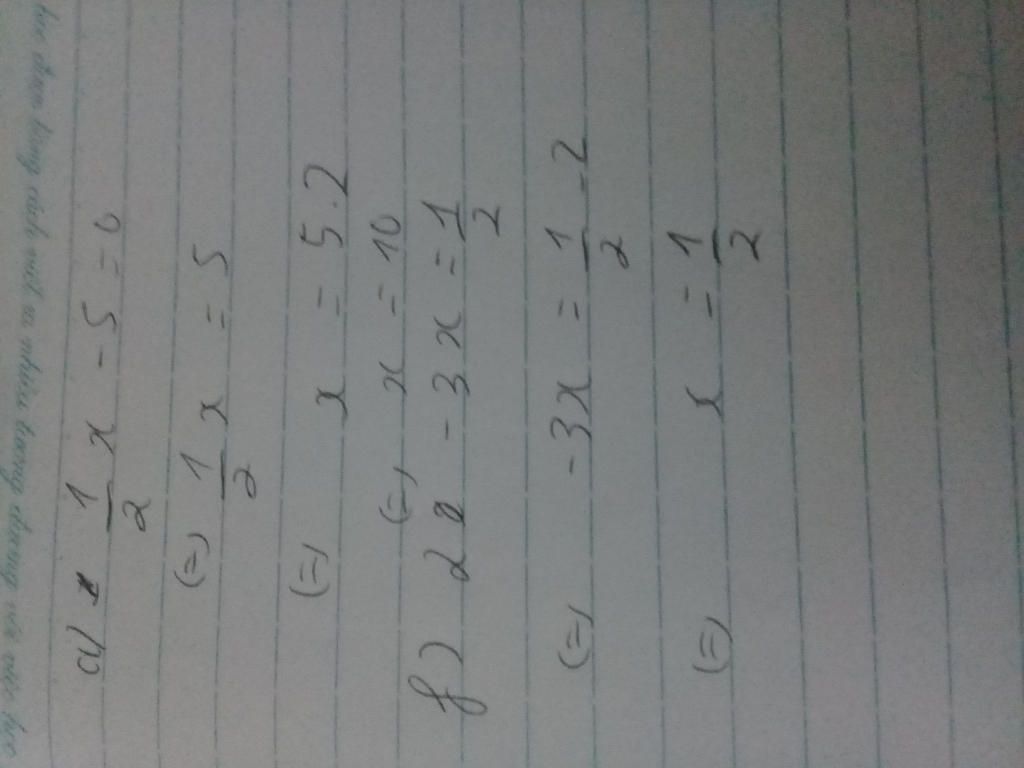 a) 1/2 x - 5 = 0
(=) 1/2 x = 5
(=) x = 5.2
(=) x = 10
f) 2 - 3x = 1/2
(=) -3x = 1/2 - 2
(=) x = 1/2